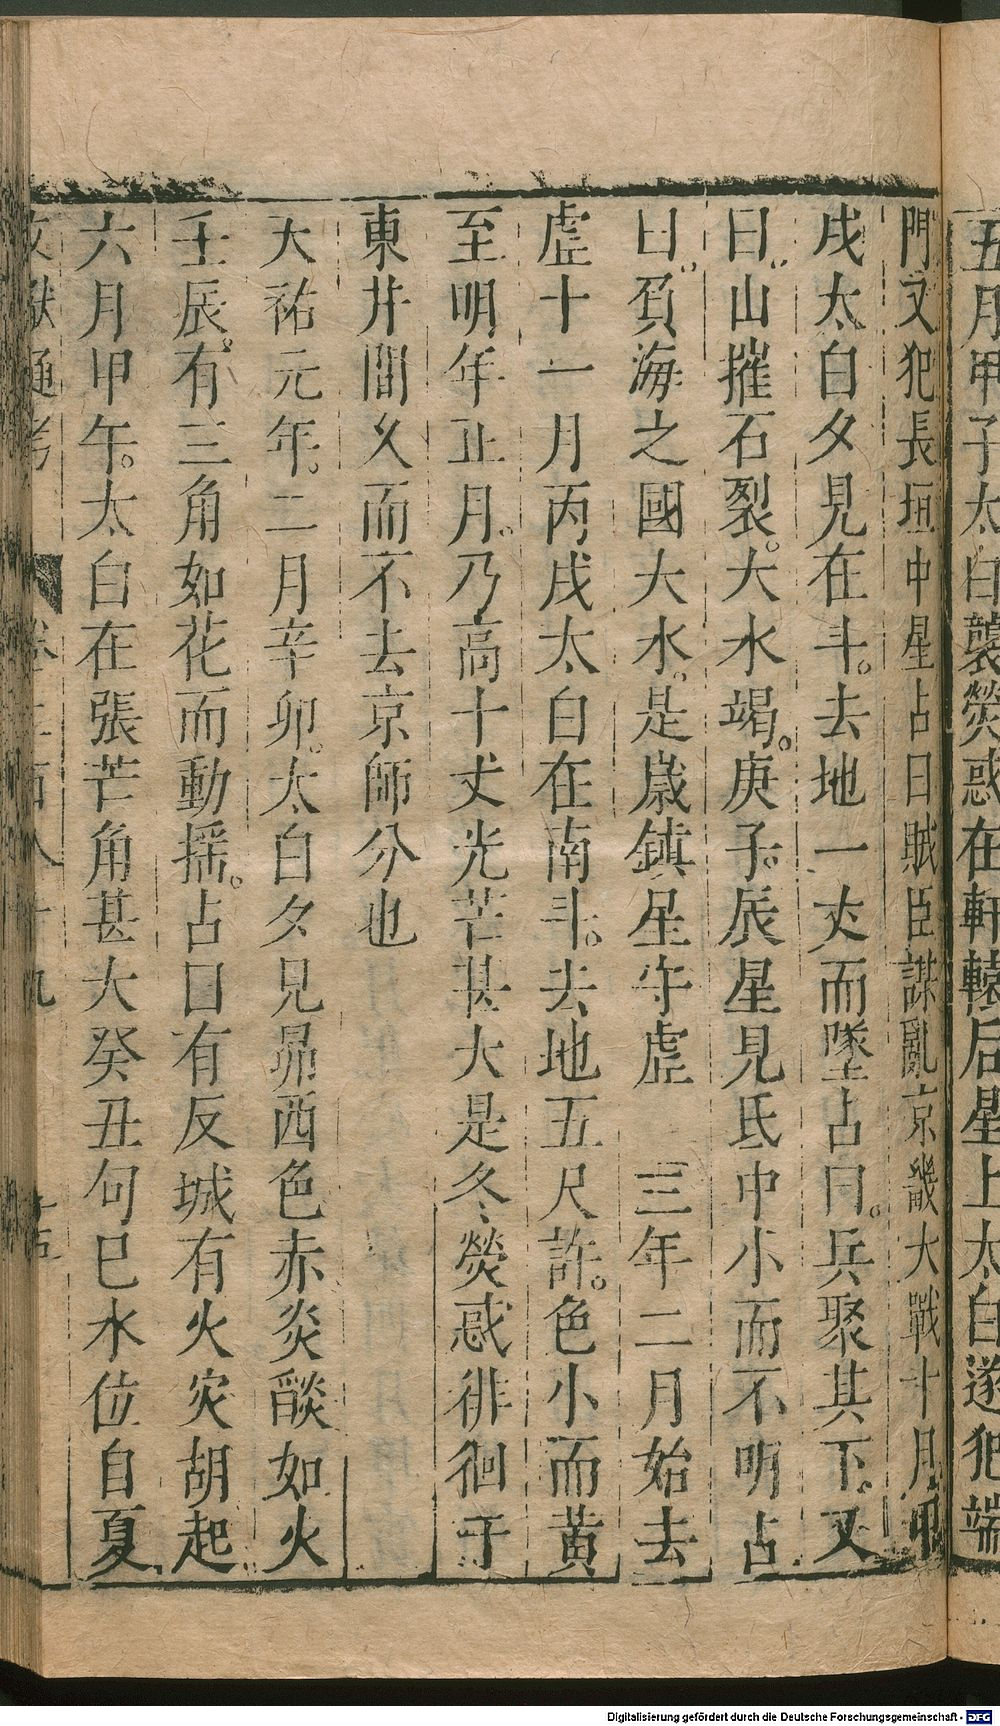 五月甲子太白襲熒惑在軒轅后星上太白遂犯端
門又犯長垣中星占曰賊臣謀亂京畿大戰十月甲
戌太白夕見在斗。去地一丈而墜占曰。兵聚其下。又
曰山摧石裂。大水竭。庚子。辰星見氐中小而不明占
曰負海之國大水。是歲鎮星守虛　三年二月始去
虛十一月丙戌太白在南斗。去地五尺許。色小而黃
至明年正月。乃高十丈光芒甚大是冬熒惑徘徊于
東井間久而不去京師分也
天祐元年。二月辛卯。太白夕見昴西色赤炎燄如火
壬辰。有三角如花而動搖。占曰有反城有火災胡起
六月甲午。太白在張芒角甚大癸丑句巳水位自夏
文獻通考　卷二百八十九
Digitalisierung gefördert durch die Deutsche Forschungsgemeinschaft - DFG